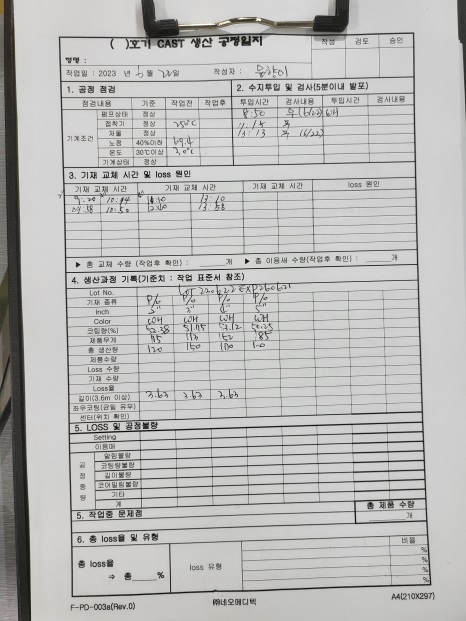 ( )호기 CAST 생산 공정일지
작성 검토 승인
명명 :
작업일 : 2023 년 6 월 22일 작성자 :
1. 공정 점검
2. 수지투입 및 검사(5분이내 발포)
점검내용 기준 작업전 작업후 투입시간 검사내용 투입시간 검사내용
기계조건
펌프상태 정상 8:50
접착기 정상 25℃
저울 정상 13:13 (6/22)
노점 40%이하
온도 30℃이상
기계상태 정상
3. 기재 교체 시간 및 loss 원인
기재 교체 시간 기재 교체 시간 기재 교체 시간 loss 원인
9:20 13:10
10:50 13:58
▶ 총 교체 수량 (작업후 확인) : ____개 ▶ 총 이음새 수량(작업후 확인) : ____개
4. 생산과정 기록(기준치 : 작업 표준서 참조)
Lot No. LOT 230622 EXP260621
기재 종류 P/G P/G P/G P/G
Inch 5" 3" 4" 5"
Color WH WH WH WH
코팅량(%) 52.38 51.75 52.12
제품무게 113 152 185
총 생산량 120 150
제품수량
Loss 수량
기재 수량
Loss율
길이(3.6m 이상) 3.63 3.63 3.63
좌우코팅(균일 유무)
센터(위치 확인)
5. LOSS 및 공정불량
Setting
이음매
공정불량
말림불량
코팅량불량
길이불량
코어밀림불량
기타
계
5. 작업중 문제점
총 제품 수량
____개
6. 총 loss율 및 유형
총 loss율
⇒ 총 ____%
loss 유형
비율
%
%
%
%
F-PD-003a(Rev.0)
㈜네오메디텍
A4(210X297)